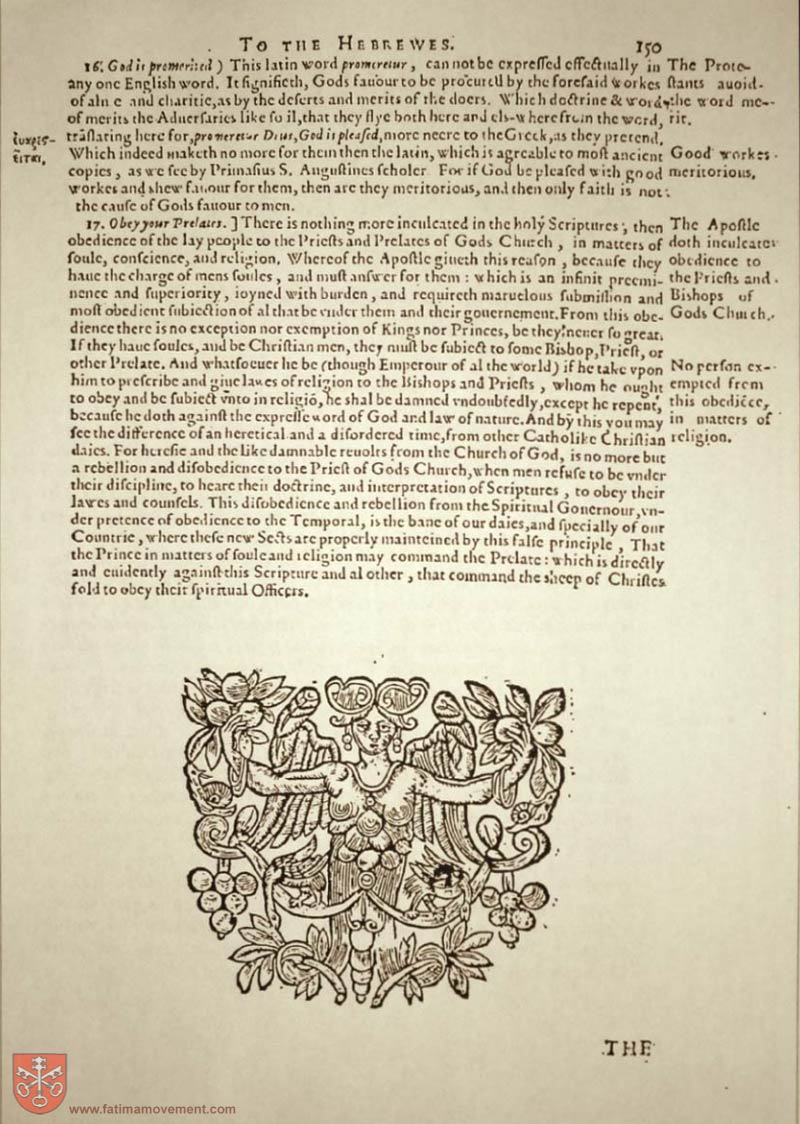 TO THE HEBREWES.
150
16. God is promerited ) This latin word promeretur, can not be expreſſed effectually in
any one Engliſh word. It ſignifieth, Gods fauour to be procured by the foreſaid workes
of almes and charitie, as by the deſerts and merits of the doers. Which doctrine & word
of merits the Aduerſaries like ſo il, that they flye both here and els-where from the word,
trãſlating here for, promeretur Deus, God is pleaſed, more neere to the Greek, as they pretend.
Which indeed maketh no more for them then the latin, which is agreable to moſt ancient
copies, as we ſee by Primaſius S. Auguſtines ſcholer For if God be pleaſed with good
workes and ſhew fauour for them, then are they meritorious, and then only faith is not
the cauſe of Gods fauour to men.
17. Obey your Prelates. ] There is nothing more inculcated in the holy Scriptures, then
obedience of the lay people to the Prieſts and Prelates of Gods Church, in matters of
ſoule, conſcience, and religion. Whereof the Apoſtle giueth this reaſon, becauſe they
haue the charge of mens ſoules, and muſt anſwer for them : which is an infinit preemi-
nence and ſuperiority, ioyned with burden, and requireth maruelous ſubmiſſion and
moſt obedient ſubiection of al that be vnder them and their gouernement. From this obe-
dience there is no exception nor exemption of Kings nor Princes, be they neuer ſo great.
If they haue ſoules, and be Chriſtian men, they muſt be ſubiect to ſome Biſhop, Prieſt, or
other Prelate. And whatſoeuer he be (though Emperour of al the world) if he take vpon
him to preſcribe and giue lawes of religion to the Biſhops and Prieſts, whom he ought
to obey and be ſubiect vnto in religiõ, he ſhal be damned vndoubtedly, except he repent,
becauſe he doth againſt the expreſſe word of God and law of nature. And by this you may
ſee the difference of an heretical and a diſordered time, from other Catholike Chriſtian
daies. For hereſie and the like damnable reuolts from the Church of God, is no more but
a rebellion and diſobedience to the Prieſt of Gods Church, when men refuſe to be vnder
their diſcipline, to heare their doctrine, and interpretation of Scriptures, to obey their
lawes and counſels. This diſobedience and rebellion from the Spiritual Gouernour, vn-
der pretence of obedience to the Temporal, is the bane of our daies, and ſpecially of our
Countrie, where theſe new Sects are properly mainteined by this falſe principle, That
the Prince in matters of ſoule and religion may command the Prelate : which is directly
and euidently againſt this Scripture and al other, that command the ſheep of Chriſtes
fold to obey their ſpiritual Officers.
The Prote-
ſtants auoid
the word me-
rit.
Good workes
meritorious.
The Apoſtle
doth inculcate
obedience to
the Prieſts and
Biſhops of
Gods Church.
No perſon ex-
empted from
this obediẽce,
in matters of
religion.
THE
www.fatimamovement.com